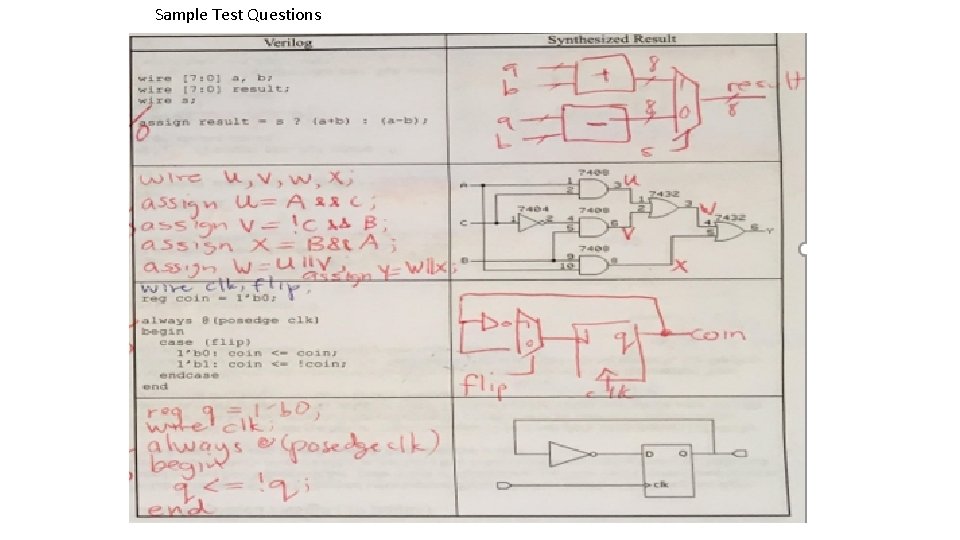 Sample Test Questions
Verilog
Synthesized Result
wire [7:0] a, b;
wire [7:0] result;
wire s;
assign result = s ? (a+b) : (a-b);
a
b
+
8
a
b
-
8
1
0
s
result
8
wire u, v, w, x;
assign u = A && C;
assign v = !C && B;
assign x = B && A;
assign w = u || v;
assign y = w || x;
A
C
B
7408
1
2
3
u
7404
1
2
7408
4
5
6
v
7408
9
10
8
x
7432
1
2
3
w
7432
4
5
6
Y
wire clk, flip;
reg coin = 1'b0;
always @(posedge clk)
begin
case (flip)
1'b0: coin <= coin;
1'b1: coin <= !coin;
endcase
end
1
0
flip
q
clk
coin
reg q = 1'b0;
wire clk;
always @(posedge clk)
begin
q <= !q;
end
D
Q
clk